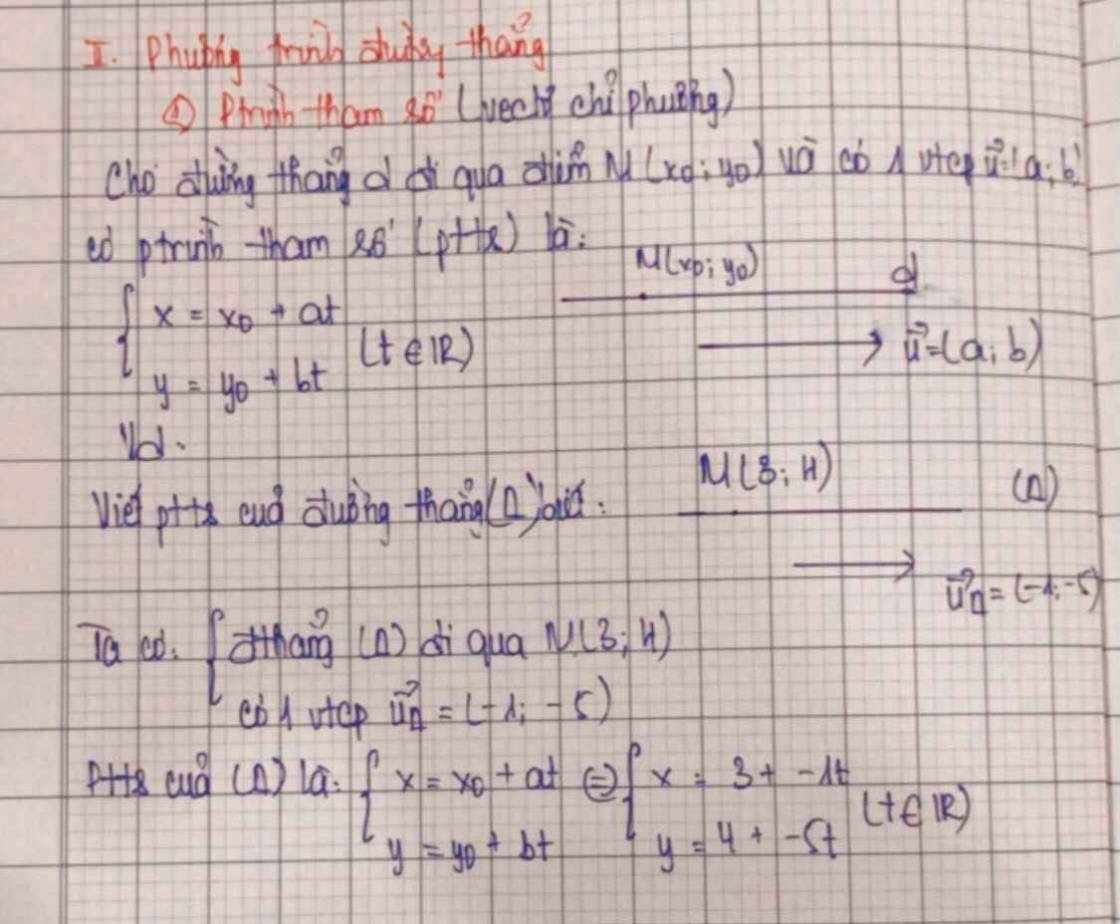 I. Phương trình đường thẳng
① Ptrình tham số (vectơ chỉ phương)
Cho đường thẳng d đi qua điểm M(x0; y0) và có 1 vtcp u⃗=(a; b)
có ptrình tham số (ptts) là:
M(x0; y0) d
{ x = x0 + at
y = y0 + bt (t ∈ ℝ)
u⃗=(a; b)
Vd.
Viết ptts của đường thẳng (Δ) biết:
M(3; 4) (Δ)
u⃗Δ = (-1; -5)
Ta có: { đthẳng (Δ) đi qua M(3; 4)
có 1 vtcp u⃗Δ = (-1; -5)
Ptts của (Δ) là: { x = x0 + at ⇔ { x = 3 + -1t
y = y0 + bt y = 4 + -5t (t ∈ ℝ)